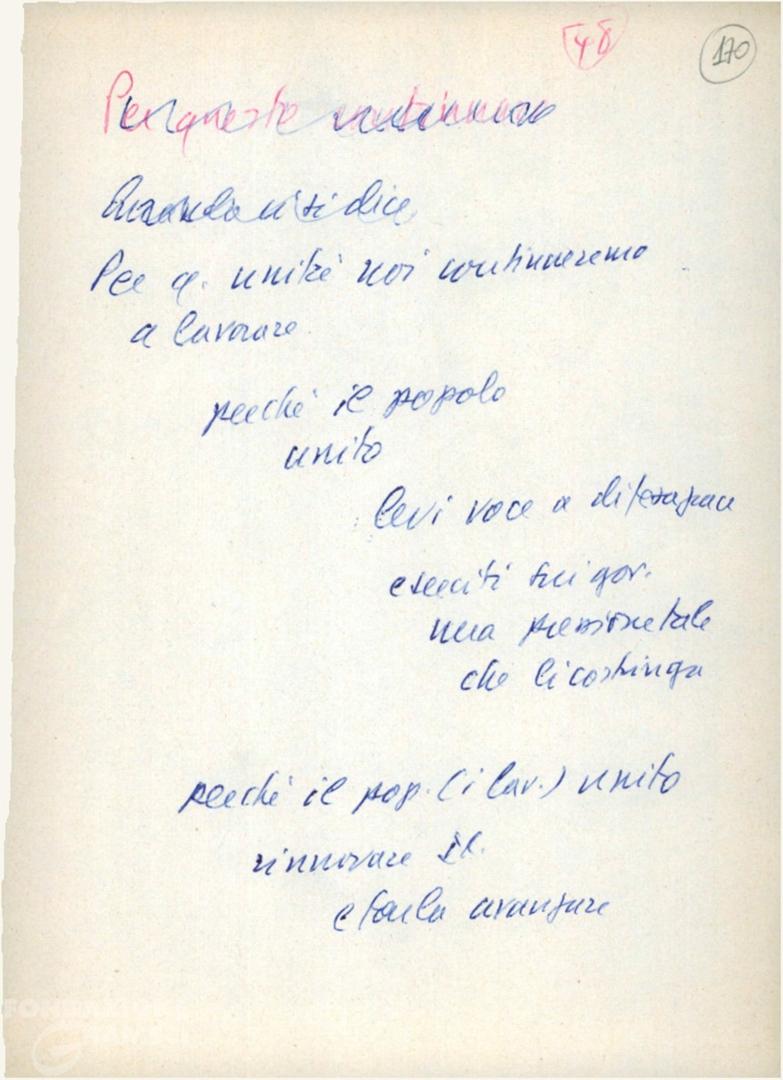 48
170
Per queste continuano
Quando ci si dice
Per q. unità noi continueremo
a lavorare
perché il popolo
unito
levi voce a difesa pace
eserciti sui gov.
una pressione tale
che li costringa
perché il pop. (i lav.) unito
rinnovare It.
e farla avanzare
FONDAZIONE